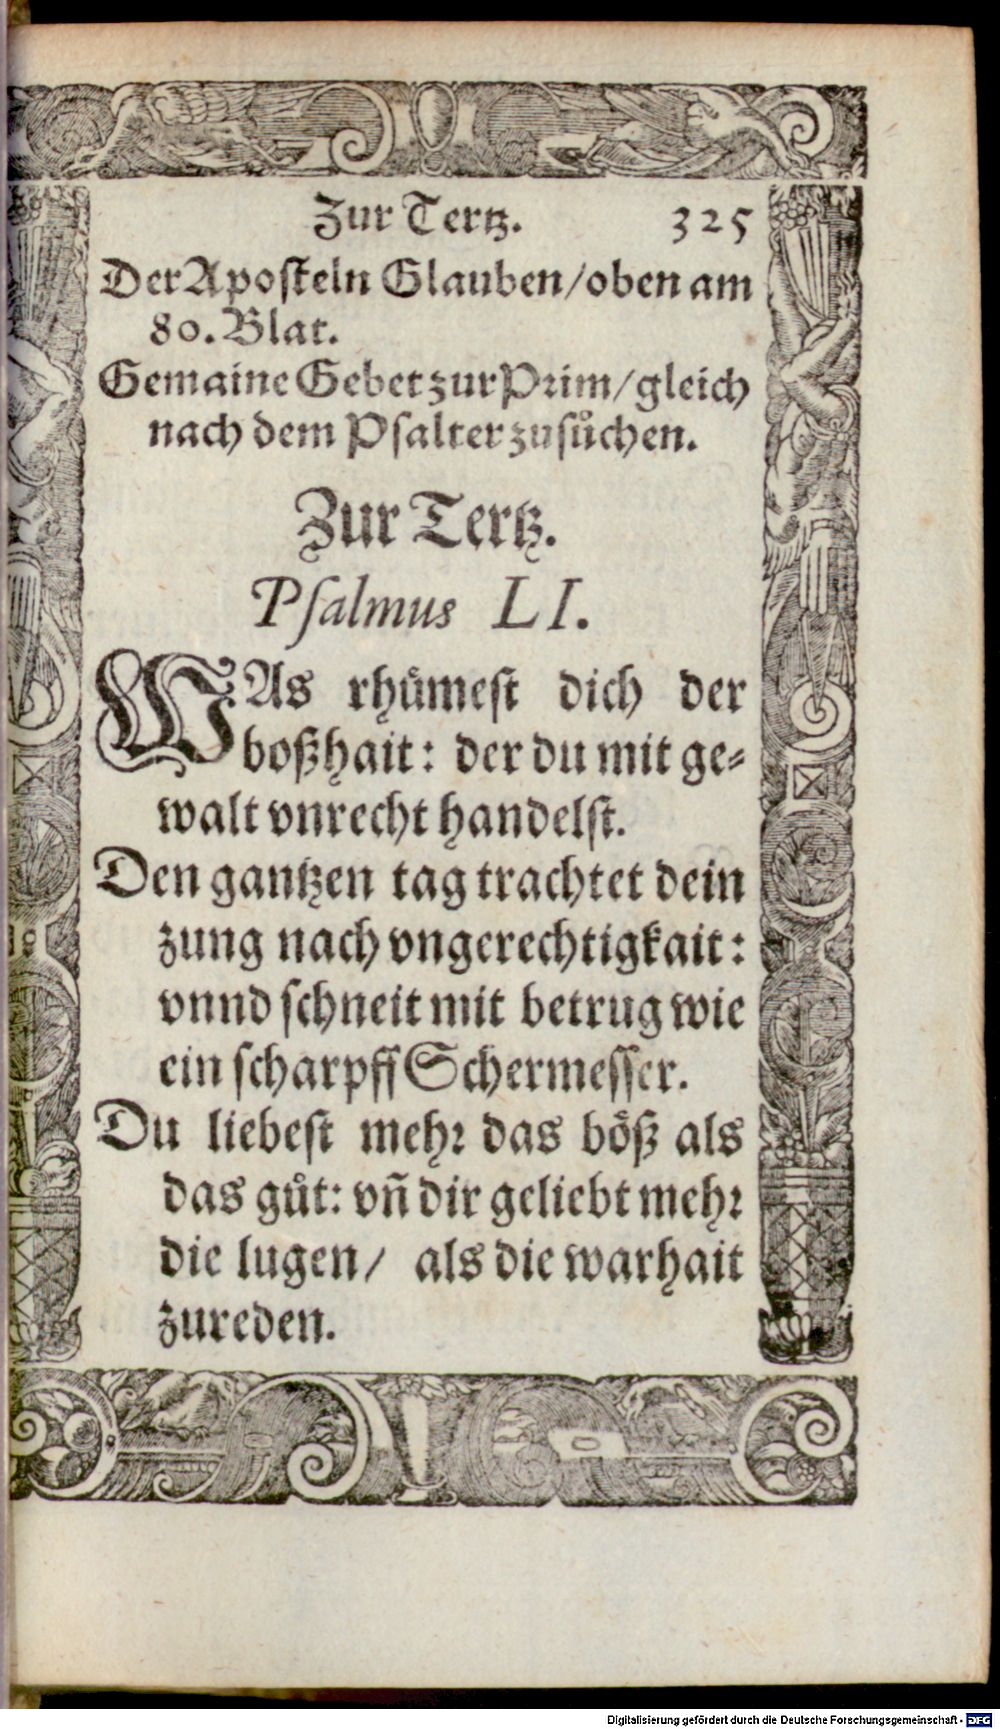 Zur Tertz. 325
Der Aposteln Glauben/oben am
80. Blat.
Gemaine Gebet zur Prim/gleich
nach dem Psalter zusůchen.
Zur Tertz.
Pſalmus LI.
WAs rhümeſt dich der
boßhait: der du mit ge⸗
walt vnrecht handelſt.
Den gantzen tag trachtet dein
zung nach vngerechtigkait:
vnnd ſchneit mit betrug wie
ein ſcharpff Schermeſſer.
Du liebeſt mehꝛ das böß als
das gůt: vñ dir geliebt mehꝛ
die lugen/ als die warhait
zureden.
Digitalisierung gefördert durch die Deutsche Forschungsgemeinschaft - DFG